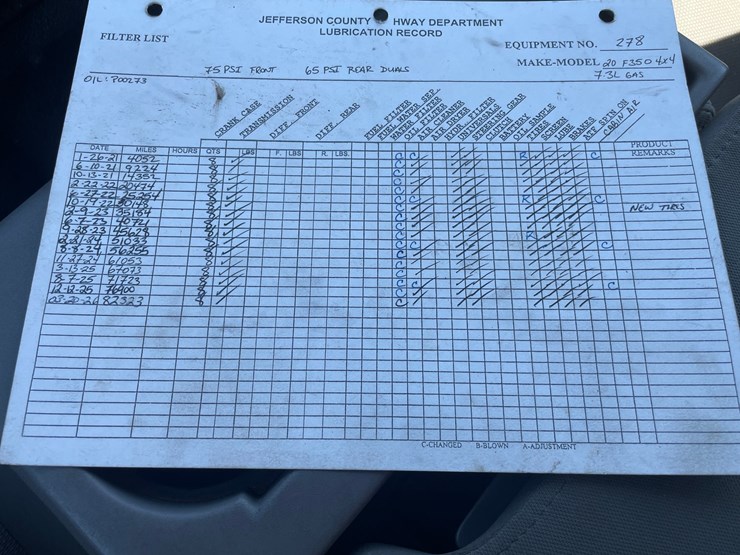 JEFFERSON COUNTY HWAY DEPARTMENT
LUBRICATION RECORD
FILTER LIST
EQUIPMENT NO. 278
MAKE-MODEL 20 F350 4x4
7.3L GAS
75 PSI FRONT 65 PSI REAR DUALS
OIL: P00273
CRANK CASE
TRANSMISSION
DIFF FRONT
DIFF REAR
FUEL FILTER
FUEL/WATER SEP.
WATER FILTER
OIL FILTER
AIR CLEANER
AIR DRYER
HYDR. FILTER
UNIVERSALS
STEERING GEAR
CLUTCH
BATTERY
OIL SAMPLE
TIRES
SCREEN
LUBE
BRAKES
ATF SPIN ON
CABIN AIR
PRODUCT
DATE MILES HOURS QTS LBS F. LBS R. LBS. REMARKS
1-26-21 4052 8 C R C
6-10-21 9224 8 C
10-13-21 14351 8 C
2-22-22 20474 8 C
8 C C R C
10-19-22 8 C
2-9-23 35184 8 C NEW TIRES
8 C
45628 8 C R
51033 8 C C C
56255 8 C
11-27-24 61053 8 C
3-13-25 67073 8 C
8 C
12-12-25 76900 8 C C
03-20-26 82323 8 C
C-CHANGED B-BLOWN A-ADJUSTMENT